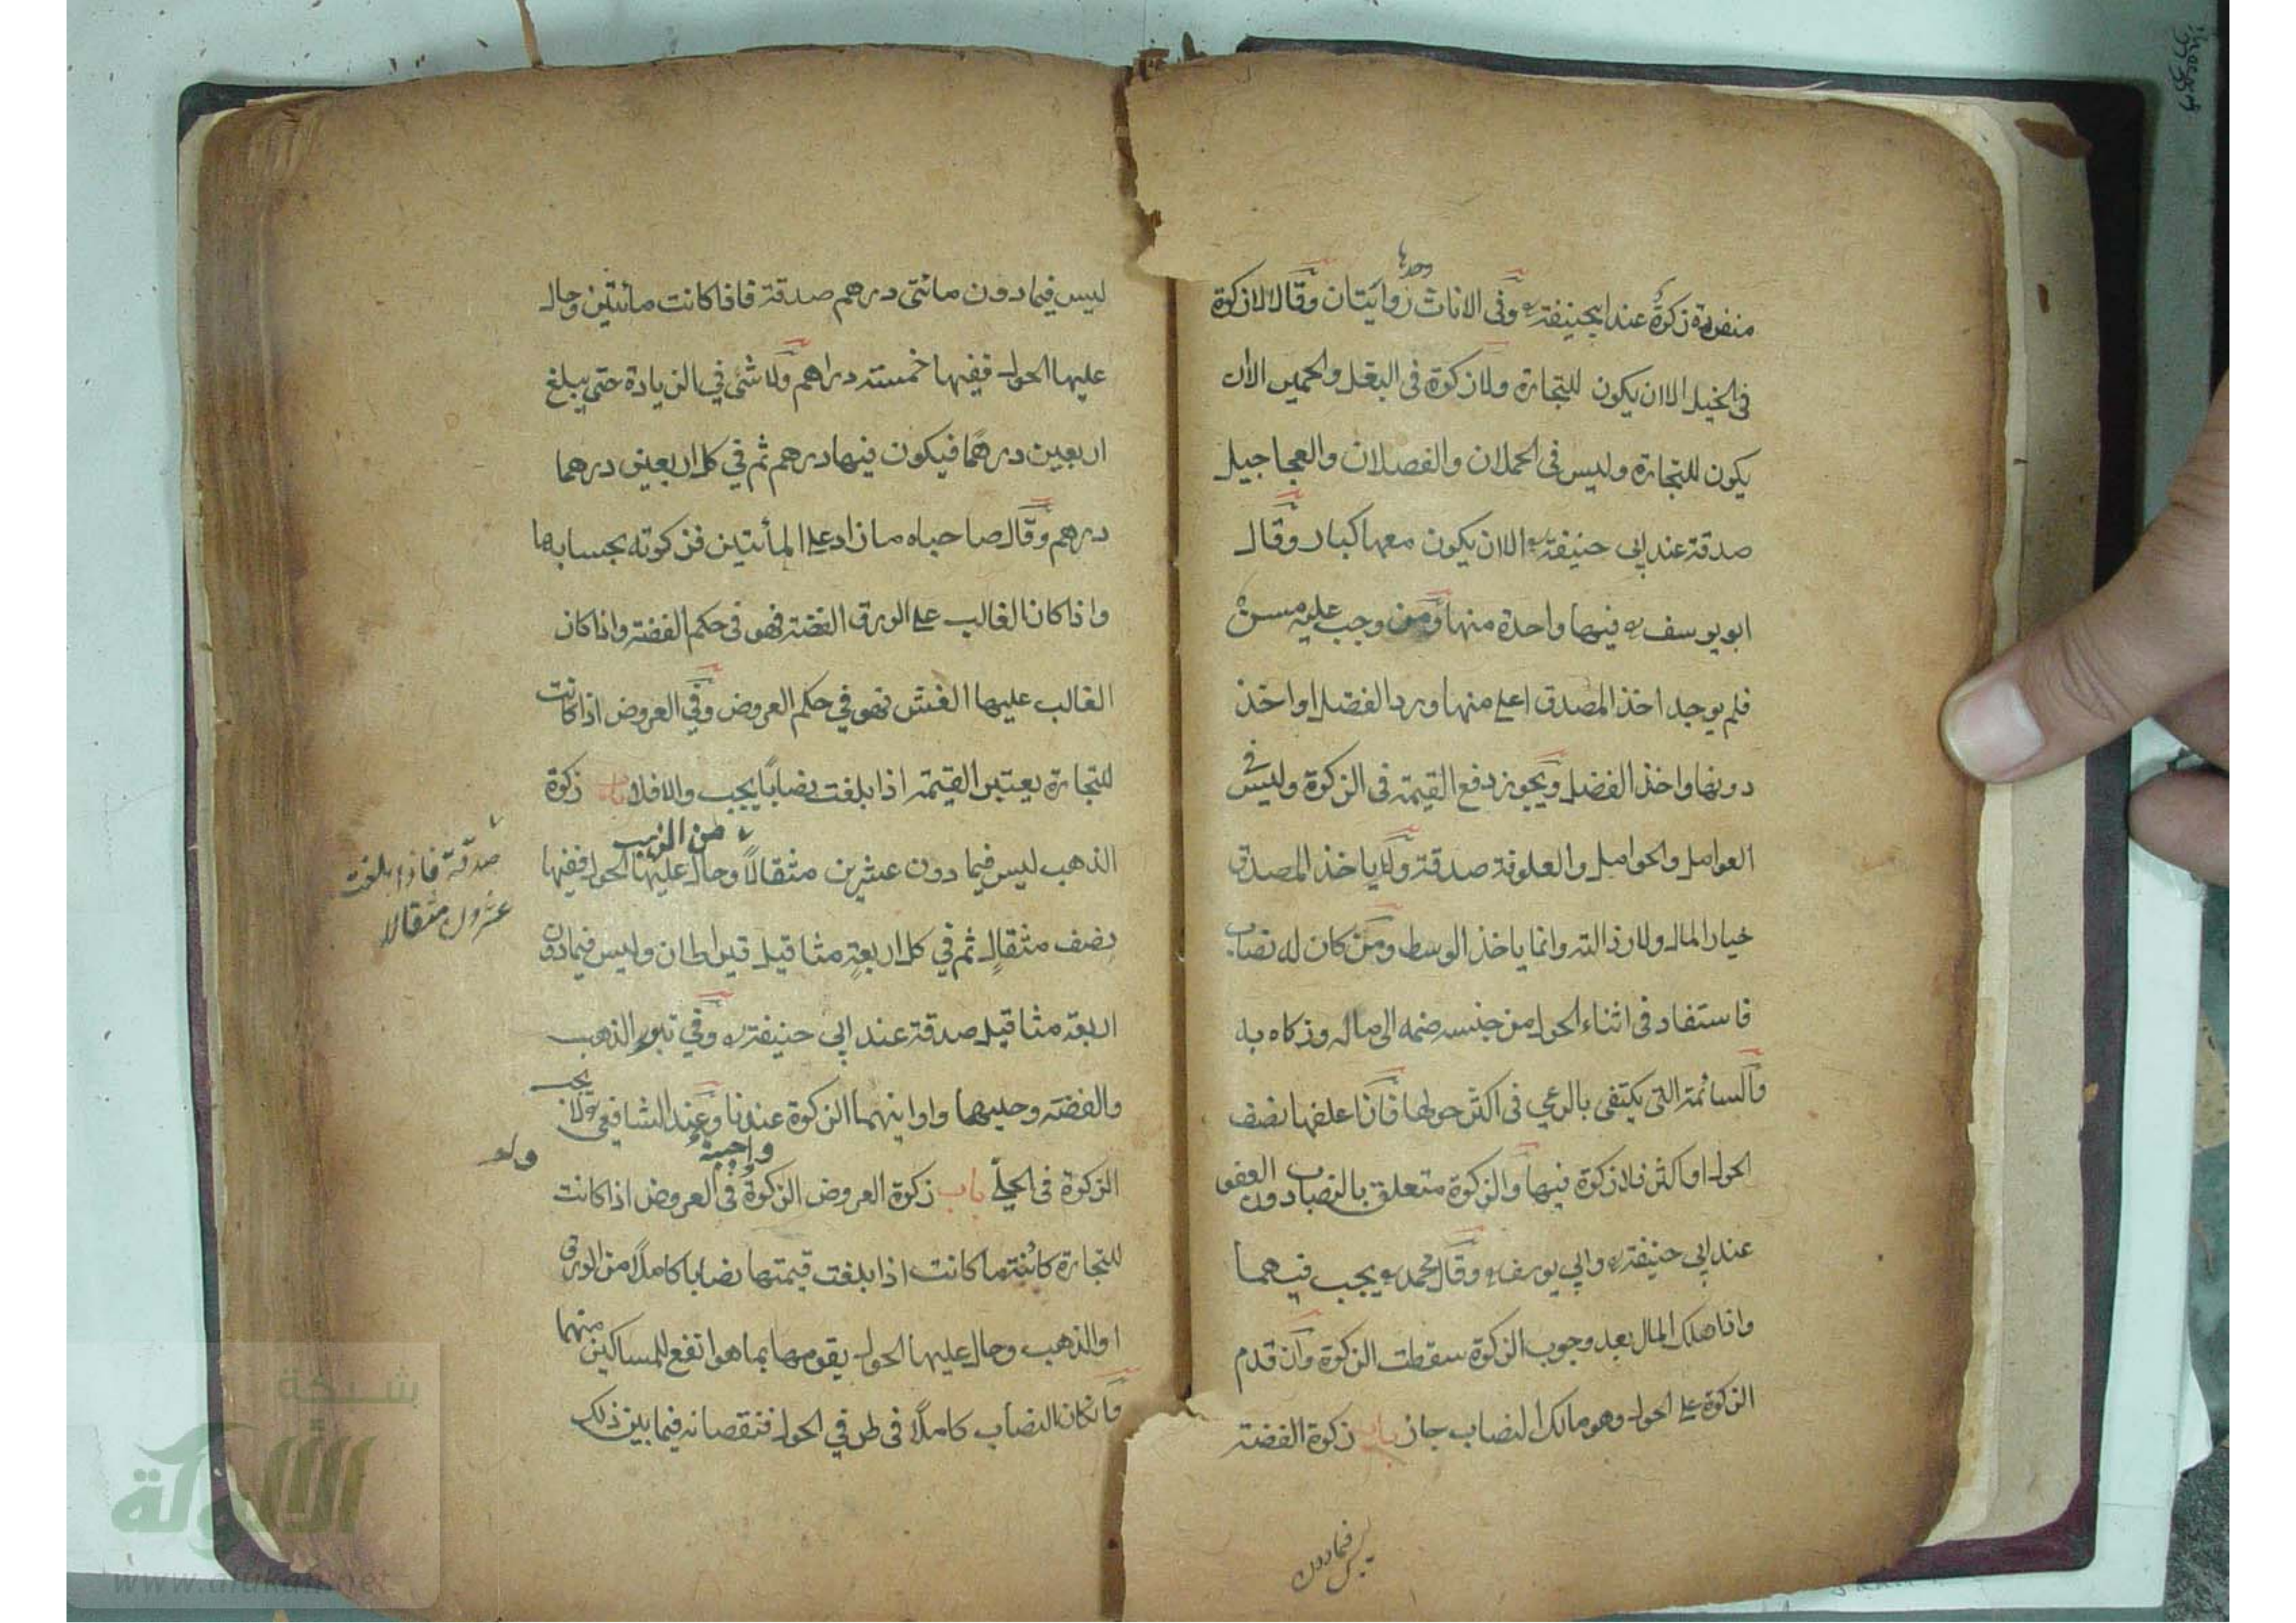 منفردة زكوة عند ابي حنيفة وفى الاناث وحدها روايتان وقالا لا زكوة
فى الخيل الا ان يكون للتجارة ولا زكوة فى البغل والحمير الا ان
يكون للتجارة وليس فى الحملان والفصلان والعجاجيل
صدقة عند ابي حنيفة الا ان يكون معها كبار وقال
ابو يوسف فيها واحدة منها ومن وجب عليه مسن
فلم يوجد اخذ المصدق اعلى منها ورد الفضل او اخذ
دونها واخذ الفضل ويجوز دفع القيمة فى الزكوة وليس فى
العوامل والحوامل والعلوفة صدقة ولا ياخذ المصدق
خيار المال ولا رذالته وانما ياخذ الوسط ومن كان له نصاب
فاستفاد فى اثناء الحول من جنسه ضمه الى ماله وزكاه به
والسائمة التى يكتفى بالرعي فى اكثر حولها فان علفها نصف
الحول او اكثر فلا زكوة فيها والزكوة متعلق بالنصاب دون العفو
عند ابي حنيفة وابي يوسف وقال محمد يجب فيهما
واذا هلك المال بعد وجوب الزكوة سقطت الزكوة وان قدم
الزكوة على الحول وهو مالك النصاب جاز باب زكوة الفضة
ليس فيما دون
ليس فيما دون مائتى درهم صدقة فاذا كانت مائتين وحال
عليها الحول ففيها خمسة دراهم ولا شئ في الزيادة حتى يبلغ
اربعين درهما فيكون فيها درهم ثم في كل اربعين درهما
درهم وقال صاحباه ما زاد على المأتين فزكوته بحسابها
واذا كان الغالب على الورق الفضة فهو فى حكم الفضة واذا كان
الغالب عليها الغش فهو في حكم العروض وفي العروض اذا كانت
للتجارة يعتبر القيمة اذا بلغت نصابًا يجب والا فلا باب زكوة
الذهب ليس فيما دون عشرين مثقالًا من الذهب وحال عليها الحول ففيها
صدقة فاذا بلغت
عشرون مثقالا
نصف مثقالٍ ثم في كل اربعةِ مثاقيل قيراطان وليس فيما دون
اربعة مثاقيل صدقة عند ابي حنيفة وفي تبور الذهب
والفضة وحليهما واوانيهما الزكوة عندنا وعند الشافعى لا يجب
الزكوة فى الحلّي باب زكوة العروض الزكوة واجبة فى العروض اذا كانت
للتجارة كائنة ما كانت اذا بلغت قيمتها نصابا كاملًا من الورق
او الذهب وحال عليها الحول يقومها بما هو انفع للمساكين منهما
وان كان النصاب كاملًا فى طرفي الحول فنقصانه فيما بين ذلك
شبكة
الألوكة
www.alukah.net